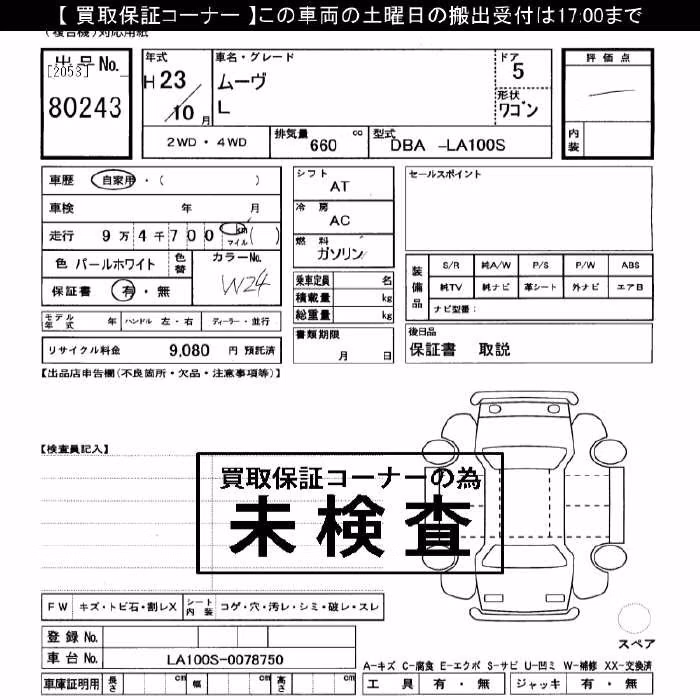 【 買取保証コーナー 】この車両の土曜日の搬出受付は17:00まで
(複合機)対応用紙
出品No.
[2053]
80243
年式
H 23
10 月
車名・グレード
ムーヴ
L
ドア
5
形状
ワゴン
評価点
内装
2WD ・ 4WD
排気量 cc
660
型式
DBA -LA100S
車歴 自家用・( )
車検 年 月
走行 9万4千700 km マイル ( )
色 パールホワイト
色替
カラーNo.
W24
保証書 有・無
モデル年式 年
ハンドル 左・右
ディーラー・並行
リサイクル料金 9,080 円 預託済
シフト
AT
冷房
AC
燃料
ガソリン
乗車定員 名
積載量 kg
総重量 kg
書類期限
月 日
セールスポイント
装備品
S/R 純A/W P/S P/W ABS
純TV 純ナビ 革シート 外ナビ エアB
ナビ型番：
後日品
保証書 取説
【出品店申告欄(不良箇所・欠品・注意事項等)】
【検査員記入】
買取保証コーナーの為
未検査
FW キズ・トビ石・割レX
シート内装 コゲ・穴・汚レ・シミ・破レ・スレ
スペア
登録No.
車台No. LA100S-0078750
A-キズ C-腐食 E-エクボ S-サビ U-凹ミ W-補修 XX-交換済
車庫証明用 長さ cm 幅 cm 高さ cm
工具 有・無 ジャッキ 有・無